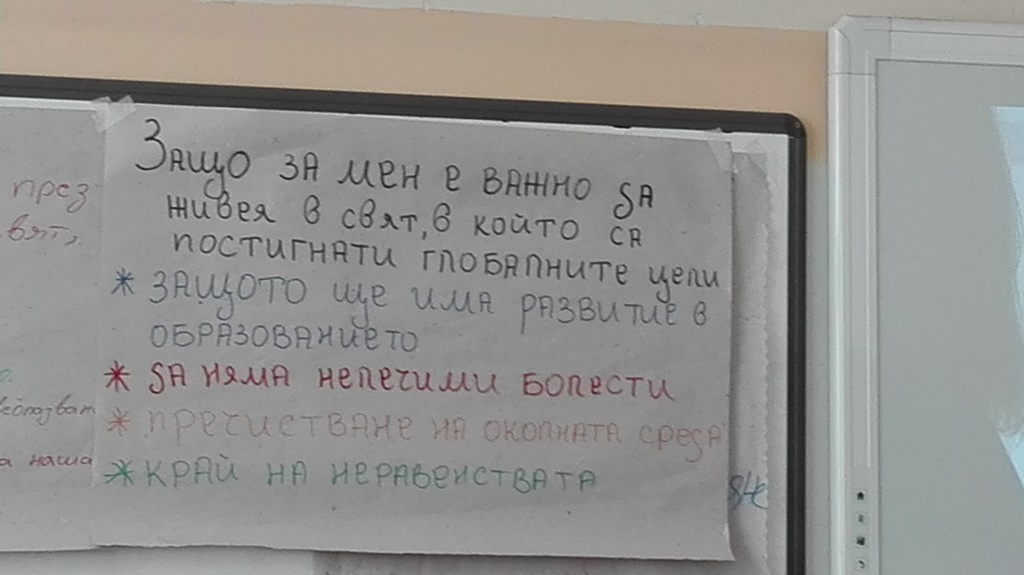 през
Защо за мен е важно да
живея в свят, в който са
постигнати глобалните цели
* защото ще има развитие в
образованието
* да няма нелечими болести
* пречистване на околната среда
* край на неравенствата
а наша